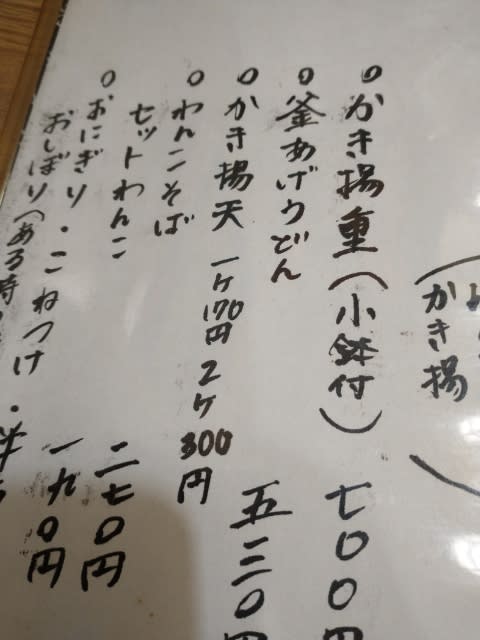 かき揚
○かき揚重(小鉢付) 七〇〇円
○釜あげうどん 五三〇円
○かき揚天 一ケ170円 2ケ300円
○わんこそば
セットわんこ 二七〇円
○おにぎり・こねつけ 一九〇円
おしぼり(ある時